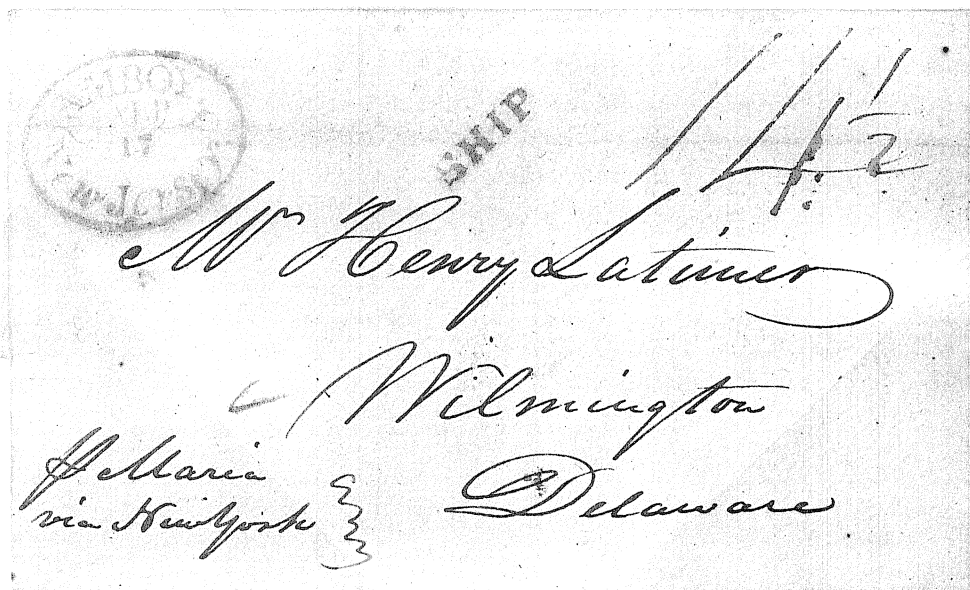 17
N. JERSEY
SHIP
14½
Mr Henry Latimer
Wilmington
Delaware
p Maria
via New York